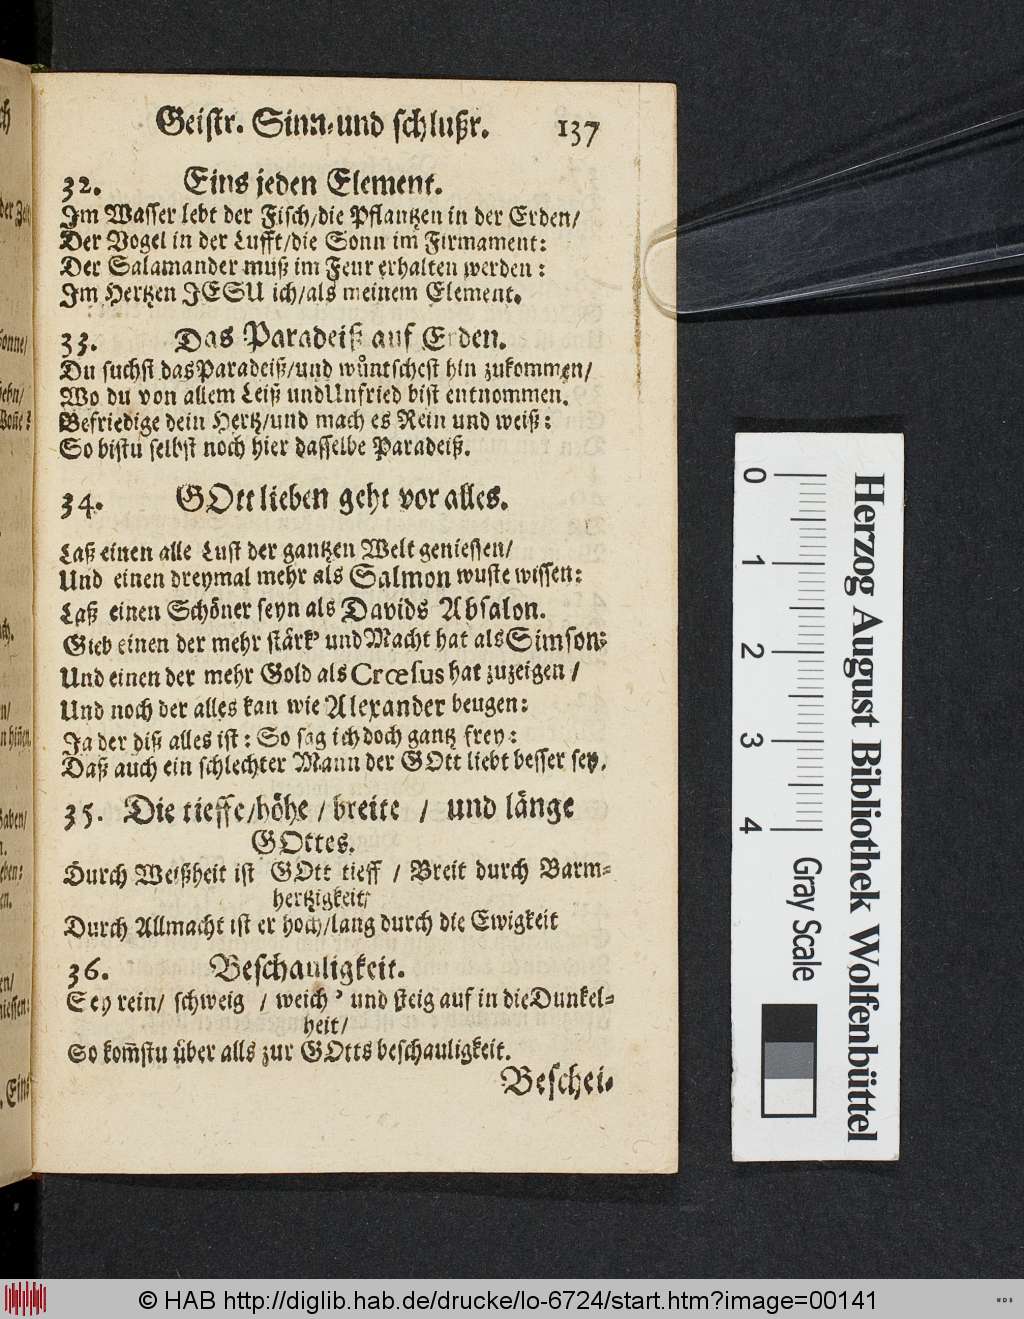 Geistr. Sinn-und schlußr. 137
32. Eins jeden Element.
Im Wasser lebt der Fisch/die Pflantzen in der Erden/
Der Vogel in der Lufft/die Sonn im Firmament:
Der Salamander muß im Feur erhalten werden:
Im Hertzen JESU ich/als meinem Element.
33. Das Paradeiß auf Erden.
Du suchst das Paradeiß/und wůntschest hin zukommen/
Wo du von allem Leiß und Unfried bist entnommen.
Befriedige dein Hertz/und mach es Rein und weiß:
So bistu selbst noch hier dasselbe Paradeiß.
34. GOtt lieben geht vor alles.
Laß einen alle Lust der gantzen Welt geniessen/
Und einen dreymal mehr als Salmon wuste wissen:
Laß einen Schöner seyn als Davids Absalon.
Gieb einen der mehr stärk' und Macht hat als Simson:
Und einen der mehr Gold als Crœsus hat zuzeigen /
Und noch der alles kan wie Alexander beugen:
Ja der diß alles ist: So sag ich doch gantz frey:
Daß auch ein schlechter Mann der GOtt liebt besser sey.
35. Die tieffe/höhe / breite / und länge
GOttes.
Durch Weißheit ist GOtt tieff / Breit durch Barm-
hertzigkeit/
Durch Allmacht ist er hoch/lang durch die Ewigkeit
36. Beschauligkeit.
Sey rein/ schweig / weich' und steig auf in die Dunkel-
heit/
So kom̄stu über alls zur GOtts beschauligkeit.
Beschei-
0 1 2 3 4
Gray Scale
Herzog August Bibliothek Wolfenbüttel
© HAB http://diglib.hab.de/drucke/lo-6724/start.htm?image=00141